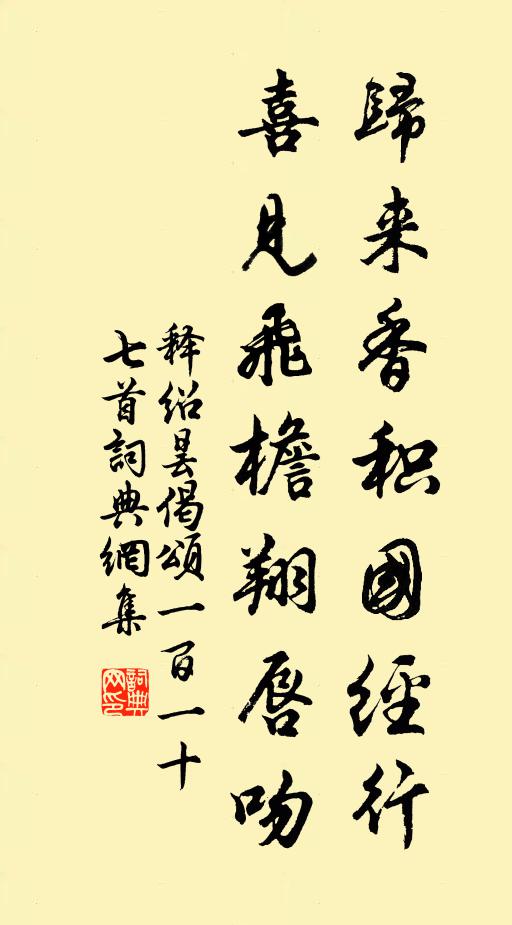 歸来香积國經行
喜見飛檐翔唇吻
释绍昙偈頌一百一十
七首詞典網集
詞典网印